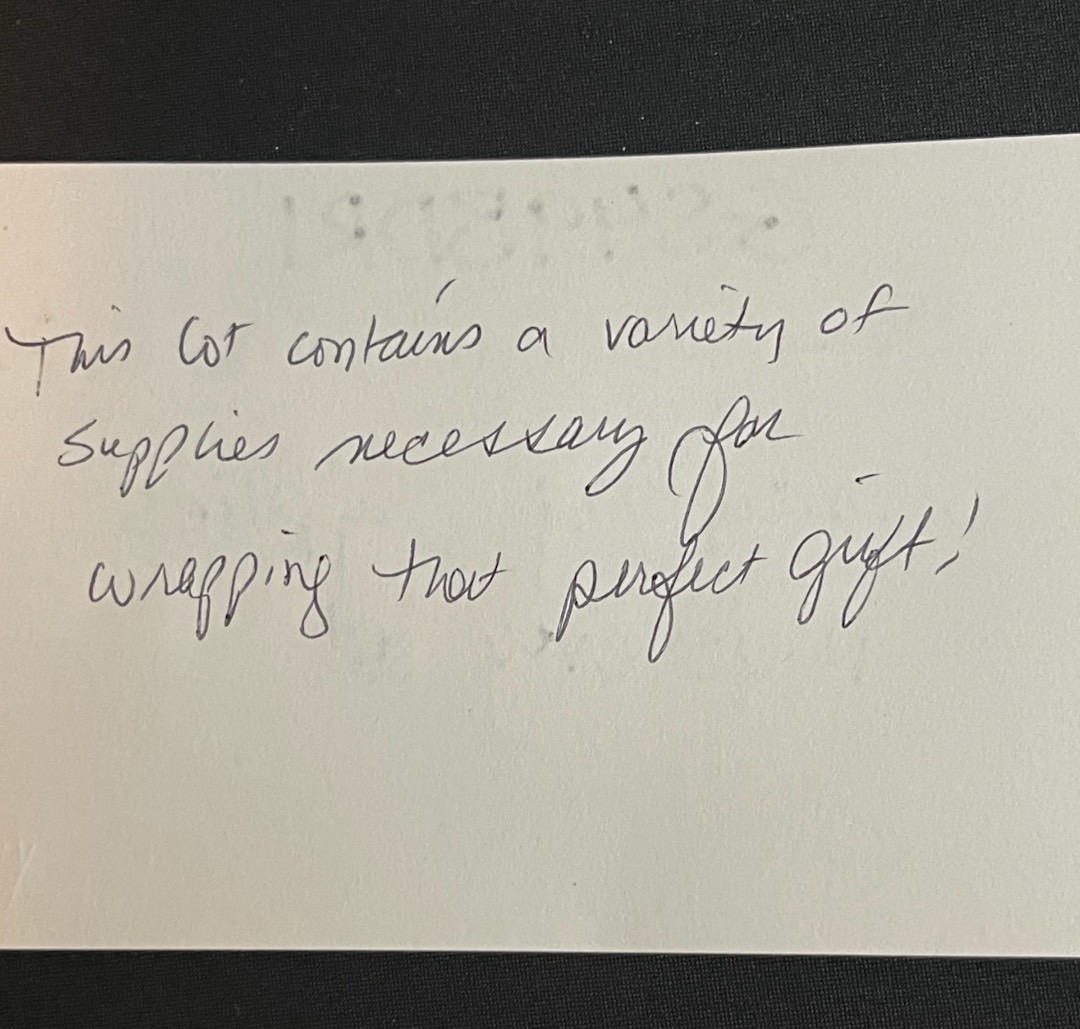 This lot contains a variety of
supplies necessary for
wrapping that perfect gift!